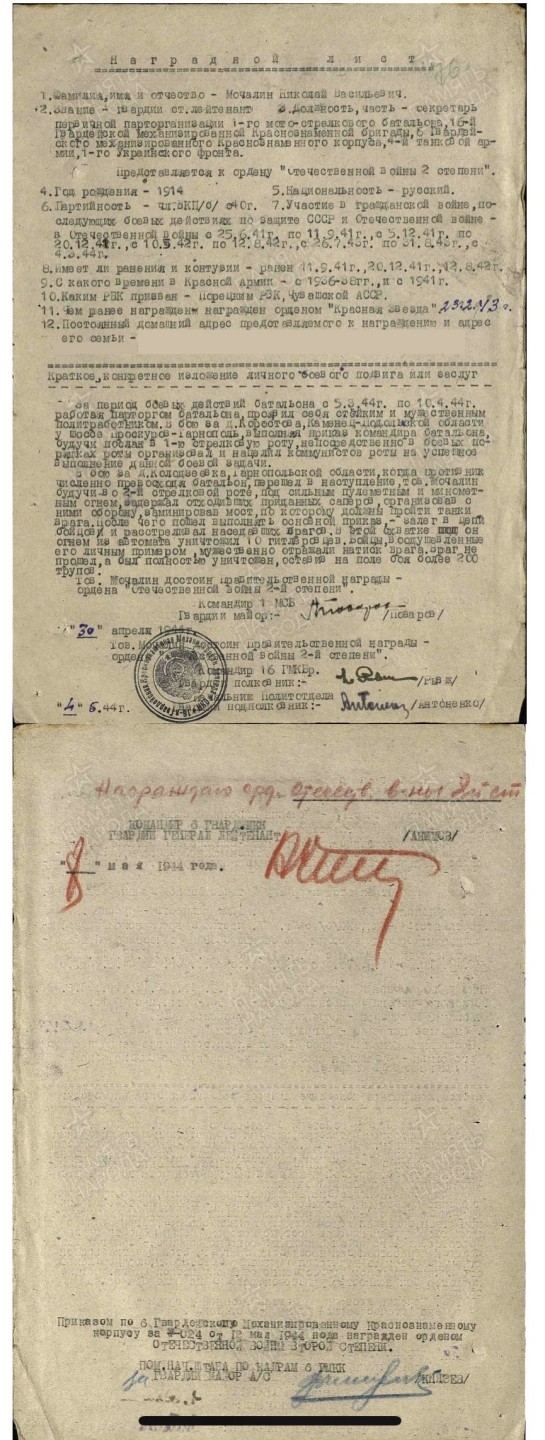 Наградной лист
1.Фамилия,имя и отчество - Мочалин Николай Васильевич.
2.Звание - гвардии ст.лейтенант 3.Должность,часть - секретарь
первичной парторганизации 1-го мото-стрелкового батальона,16-й
Гвардейской механизированной Краснознаменной бригады,6 Гвардей-
ского механизированного Краснознаменного корпуса,4-й танковой ар-
мии,1-го Украинского фронта.
Представляется к ордену "Отечественной войны 2 степени".
4.Год рождения - 1914 5.Национальность - русский.
6.Партийность - чл.ВКП/б/ с 40г. 7.Участие в гражданской войне,по-
следующих боевых действиях по защите СССР и Отечественной войне -
в Отечественной войны с 25.6.41г. по 11.9.41г., с 5.12.41г. по
20.12.41г., с 10.5.42г. по 12.8.42г., с 26.7.43г. по 31.8.43г., с
4.3.44г.
8.Имеет ли ранения и контузии - ранен 11.9.41г.,20.12.41г.,12.8.42г.
9.С какого времени в Красной Армии - с 1936-38гг.,и с 1941г.
10.Каким РВК призван - Порецким РВК,Чувашской АССР.
11.Чем ранее награжден награжден орденом "Красная Звезда"
12.Постоянный домашний адрес представляемого к награждению и адрес
его семьи -
Краткое,конкретное изложение личного боевого подвига или заслуг
За период боевых действий батальона с 5.3.44г. по 10.4.44г.
работая парторгом батальона,проявил себя стойким и мужественным
политработником.В бою за д.Коростова,Каменец-Подольской области
у шоссе Проскуров-Тарнополь,выполняя приказ командира батальона,
будучи послан в 1-ю стрелковую роту,непосредственно в боевых по-
рядках роты организовал и нацелил коммунистов роты на успешное
выполнение данной боевой задачи.
В бою за д.Колодзеевка,Тарнопольской области,когда противник
численно превосходя батальон,перешел в наступление,тов.Мочалин
будучи во 2-й стрелковой роте,под сильным пулеметным и миномет-
ным огнем,задержал отходивших приданных саперов,организовав с
ними оборону,заминировав мост,по которому должны пройти танки
врага.После чего пошел выполнять основной приказ,- залег в цепи
бойцов и расстреливал наседавших врагов.В этой схватке он
огнем из автомата уничтожил 10 гитлеровцев.Бойцы,воодушевленные
его личным примером,мужественно отражали натиск врага.Враг не
прошел,а был полностью уничтожен,оставив на поле боя более 200
трупов.
Тов. Мочалин достоин Правительственной награды -
ордена "Отечественной войны 2-й степени".
Командир 1 МСБ
Гвардии майор:- /Поваров/
"30" апреля 1944г.
Тов.Мочалин достоин Правительственной награды -
ордена "Отечественной войны 2-й степени".
Командир 16 ГМКБр.
Гвардии полковник:-
Начальник Политотдела
Гвардии подполковник:- /Антоненко/
"4" 5.44г.
Награждаю орд. Отечеств. в-ны 2й ст
КОМАНДИР 6 ГВАРД.МКК
ГВАРДИИ ГЕНЕРАЛ ЛЕЙТЕНАНТ /АКИМОВ/
"8" мая 1944 года.
Приказом по 6 Гвардейскому Механизированному Краснознаменному
корпусу за №-024 от 12 мая 1944 года награжден орденом
ОТЕЧЕСТВЕННОЙ ВОЙНЫ ВТОРОЙ СТЕПЕНИ.
ПОМ.НАЧ.ШТАБА ПО КАДРАМ 6 ГМКК
ГВАРДИИ МАЙОР А/С /КНЯЗЕВ/